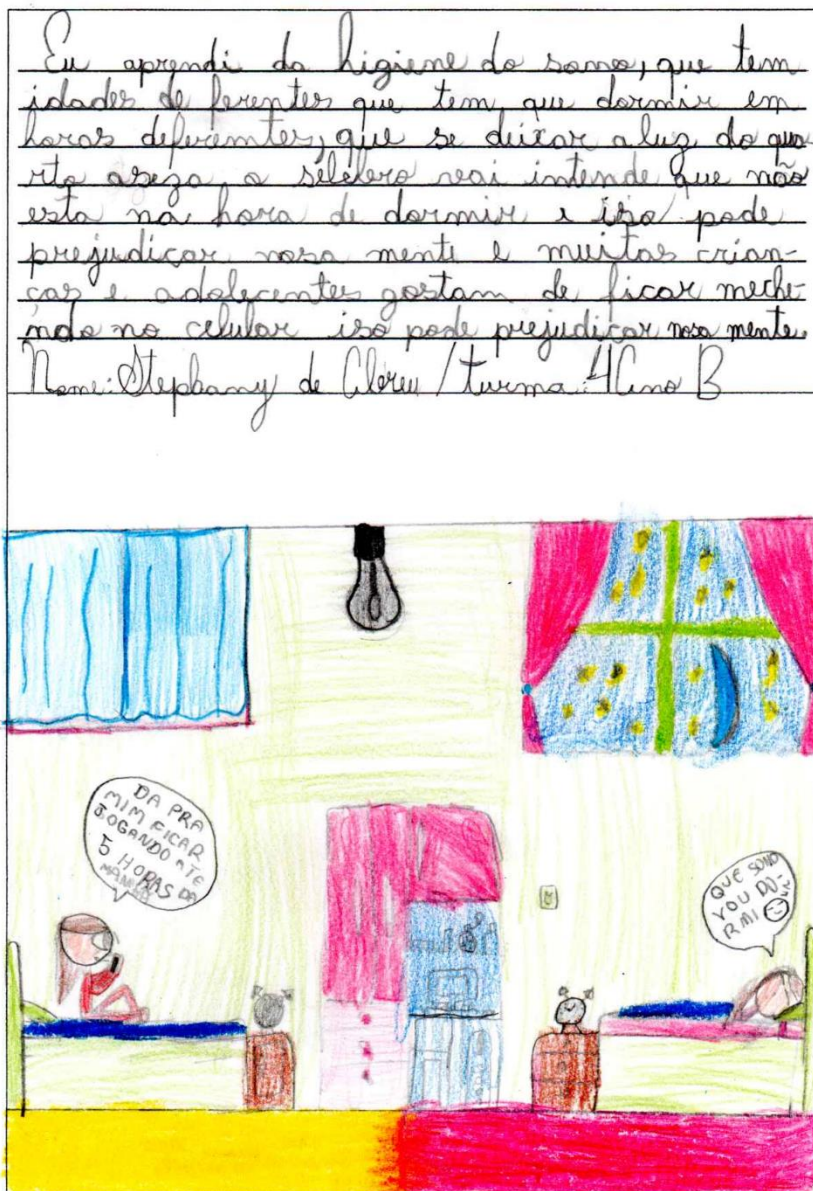 Eu aprendi da higiene do sono, que tem
idades de ferentes que tem que dormir em
horas deferentes, que se deixar a luz do qua
rto aseza o selebro vai intende que não
esta na hora de dormir e iso pode
prejudicar nosa mente e muitas crian-
ças e adolecentes gostam de ficar meche-
ndo no celular iso pode prejudicar nosa mente.
Nome: Stephany de Abreu / turma: 4 Ano B
DA PRA
MIM FICAR
JOGANDO ATE
5 HORAS DA
MANHÃ
QUE SONO
VOU DO-
RMI